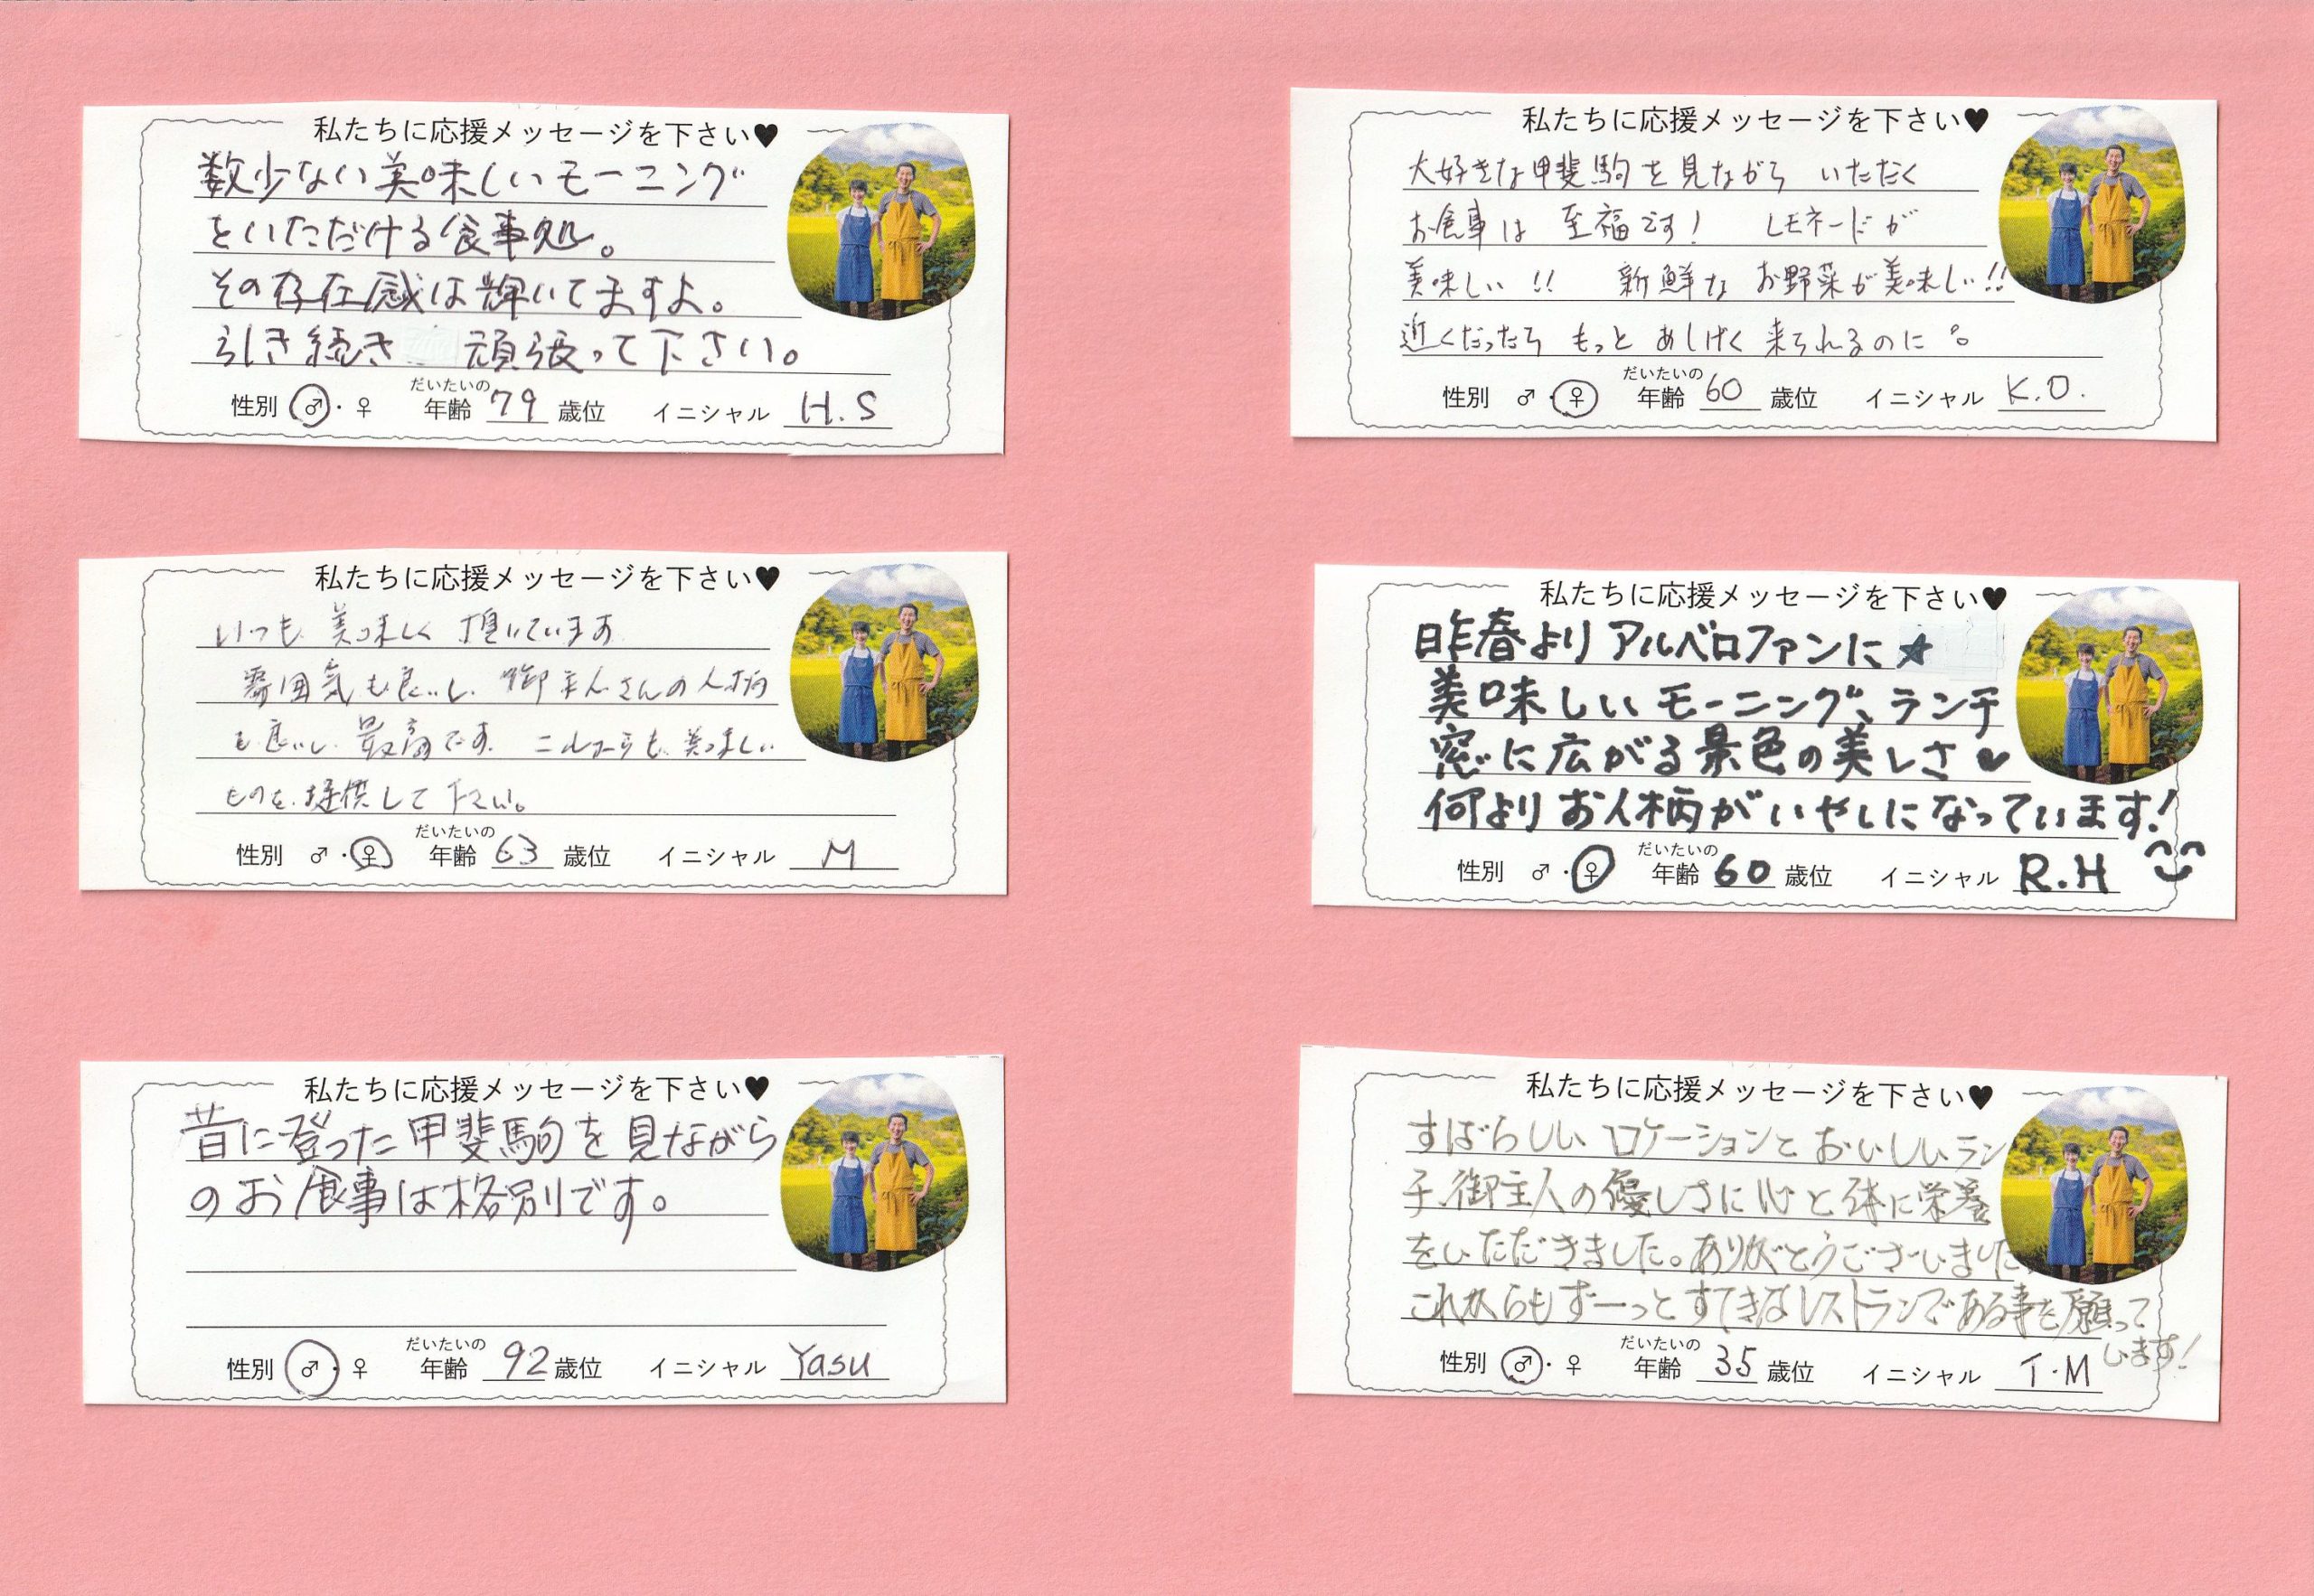 私たちに応援メッセージを下さい♥
数少ない美味しいモーニング
をいただける食事処。
その存在感は輝いてますよ。
引き続き 頑張って下さい。
性別 ♂・♀ だいたいの年齢 79 歳位 イニシャル H.S
私たちに応援メッセージを下さい♥
大好きな甲斐駒を見ながら いただく
お食事は 至福です! レモネードが
美味しい!! 新鮮な お野菜が美味しい!!
近くだったら もっと あしげく 来られるのに。
性別 ♂・♀ だいたいの年齢 60 歳位 イニシャル K.O.
私たちに応援メッセージを下さい♥
いつも 美味しく 頂いています
雰囲気も良いし、御主人さんの人柄
も良いし、最高です。これからも、美味しい
ものを、提供して下さい。
性別 ♂・♀ だいたいの年齢 63 歳位 イニシャル M
私たちに応援メッセージを下さい♥
昨春より アルベロファンに★
美味しい モーニング、ランチ
窓に広がる景色の美しさ♥
何より お人柄が いやしになっています!
性別 ♂・♀ だいたいの年齢 60 歳位 イニシャル R.H
私たちに応援メッセージを下さい♥
昔に登った甲斐駒を見ながら
のお食事は格別です。
性別 ♂・♀ だいたいの年齢 92 歳位 イニシャル Yasu
私たちに応援メッセージを下さい♥
すばらしい ロケーションと おいしいラン
チ、御主人の優しさに 心と体に栄養
をいただきました。ありがとうございました
これからもずーっとすてきなレストランである事を願って
います!
性別 ♂・♀ だいたいの年齢 35 歳位 イニシャル T.M